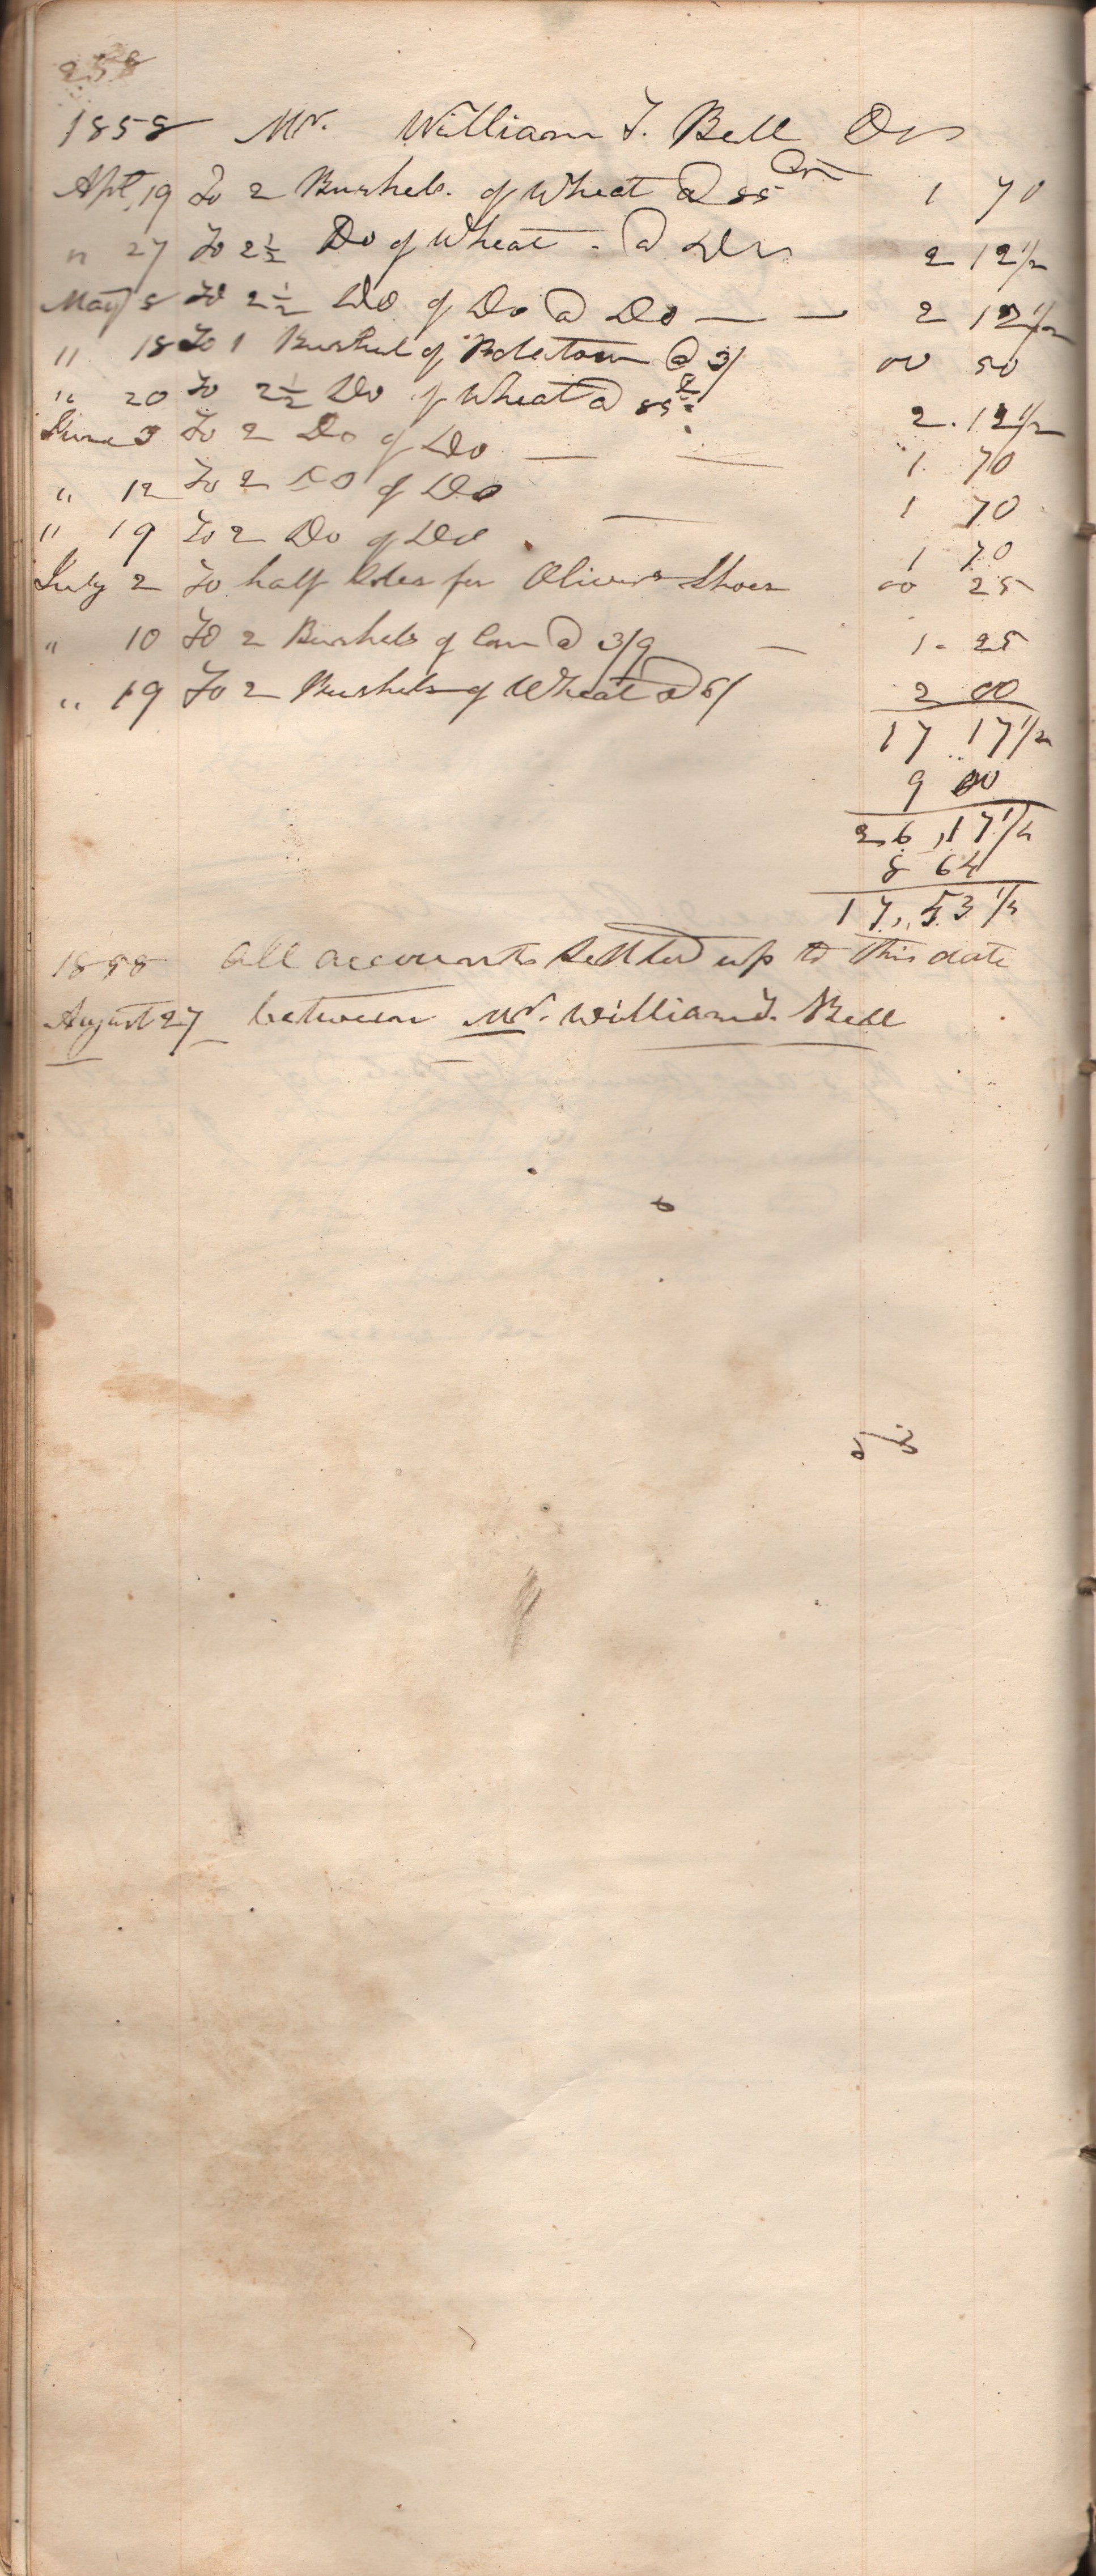 258
1858 Mr. William T. Bell Dr
Apl, 19 To 2 Bushels. of Wheat @ 85 Cts 1 70
" 27 To 2 1/2 Do of Wheat - @ Do 2 12 1/2
May 8 To 2 1/2 Do of Do @ Do — — 2 12 1/2
" 18 To 1 Bushel of @ 3/ 00 50
" 20 To 2 1/2 Do of Wheat @ 85 2.12 1/2
June 3 To 2 Do of Do — — 1 70
" 12 To 2 Do of Do 1 70
" 19 To 2 Do of Do — 1 70
July 2 To half soles for Olivers Shoes 00 25
" 10 To 2 Bushels of Corn @ 3/9 — 1-25
" 19 To 2 Bushels of Wheat @ 6/ 2 00
17 17 1/2
9 00
26,17 1/2
8 64
17,,53 1/2
1858 All accounts settled up to this date
August 27 between Mr. William T. Bell
53